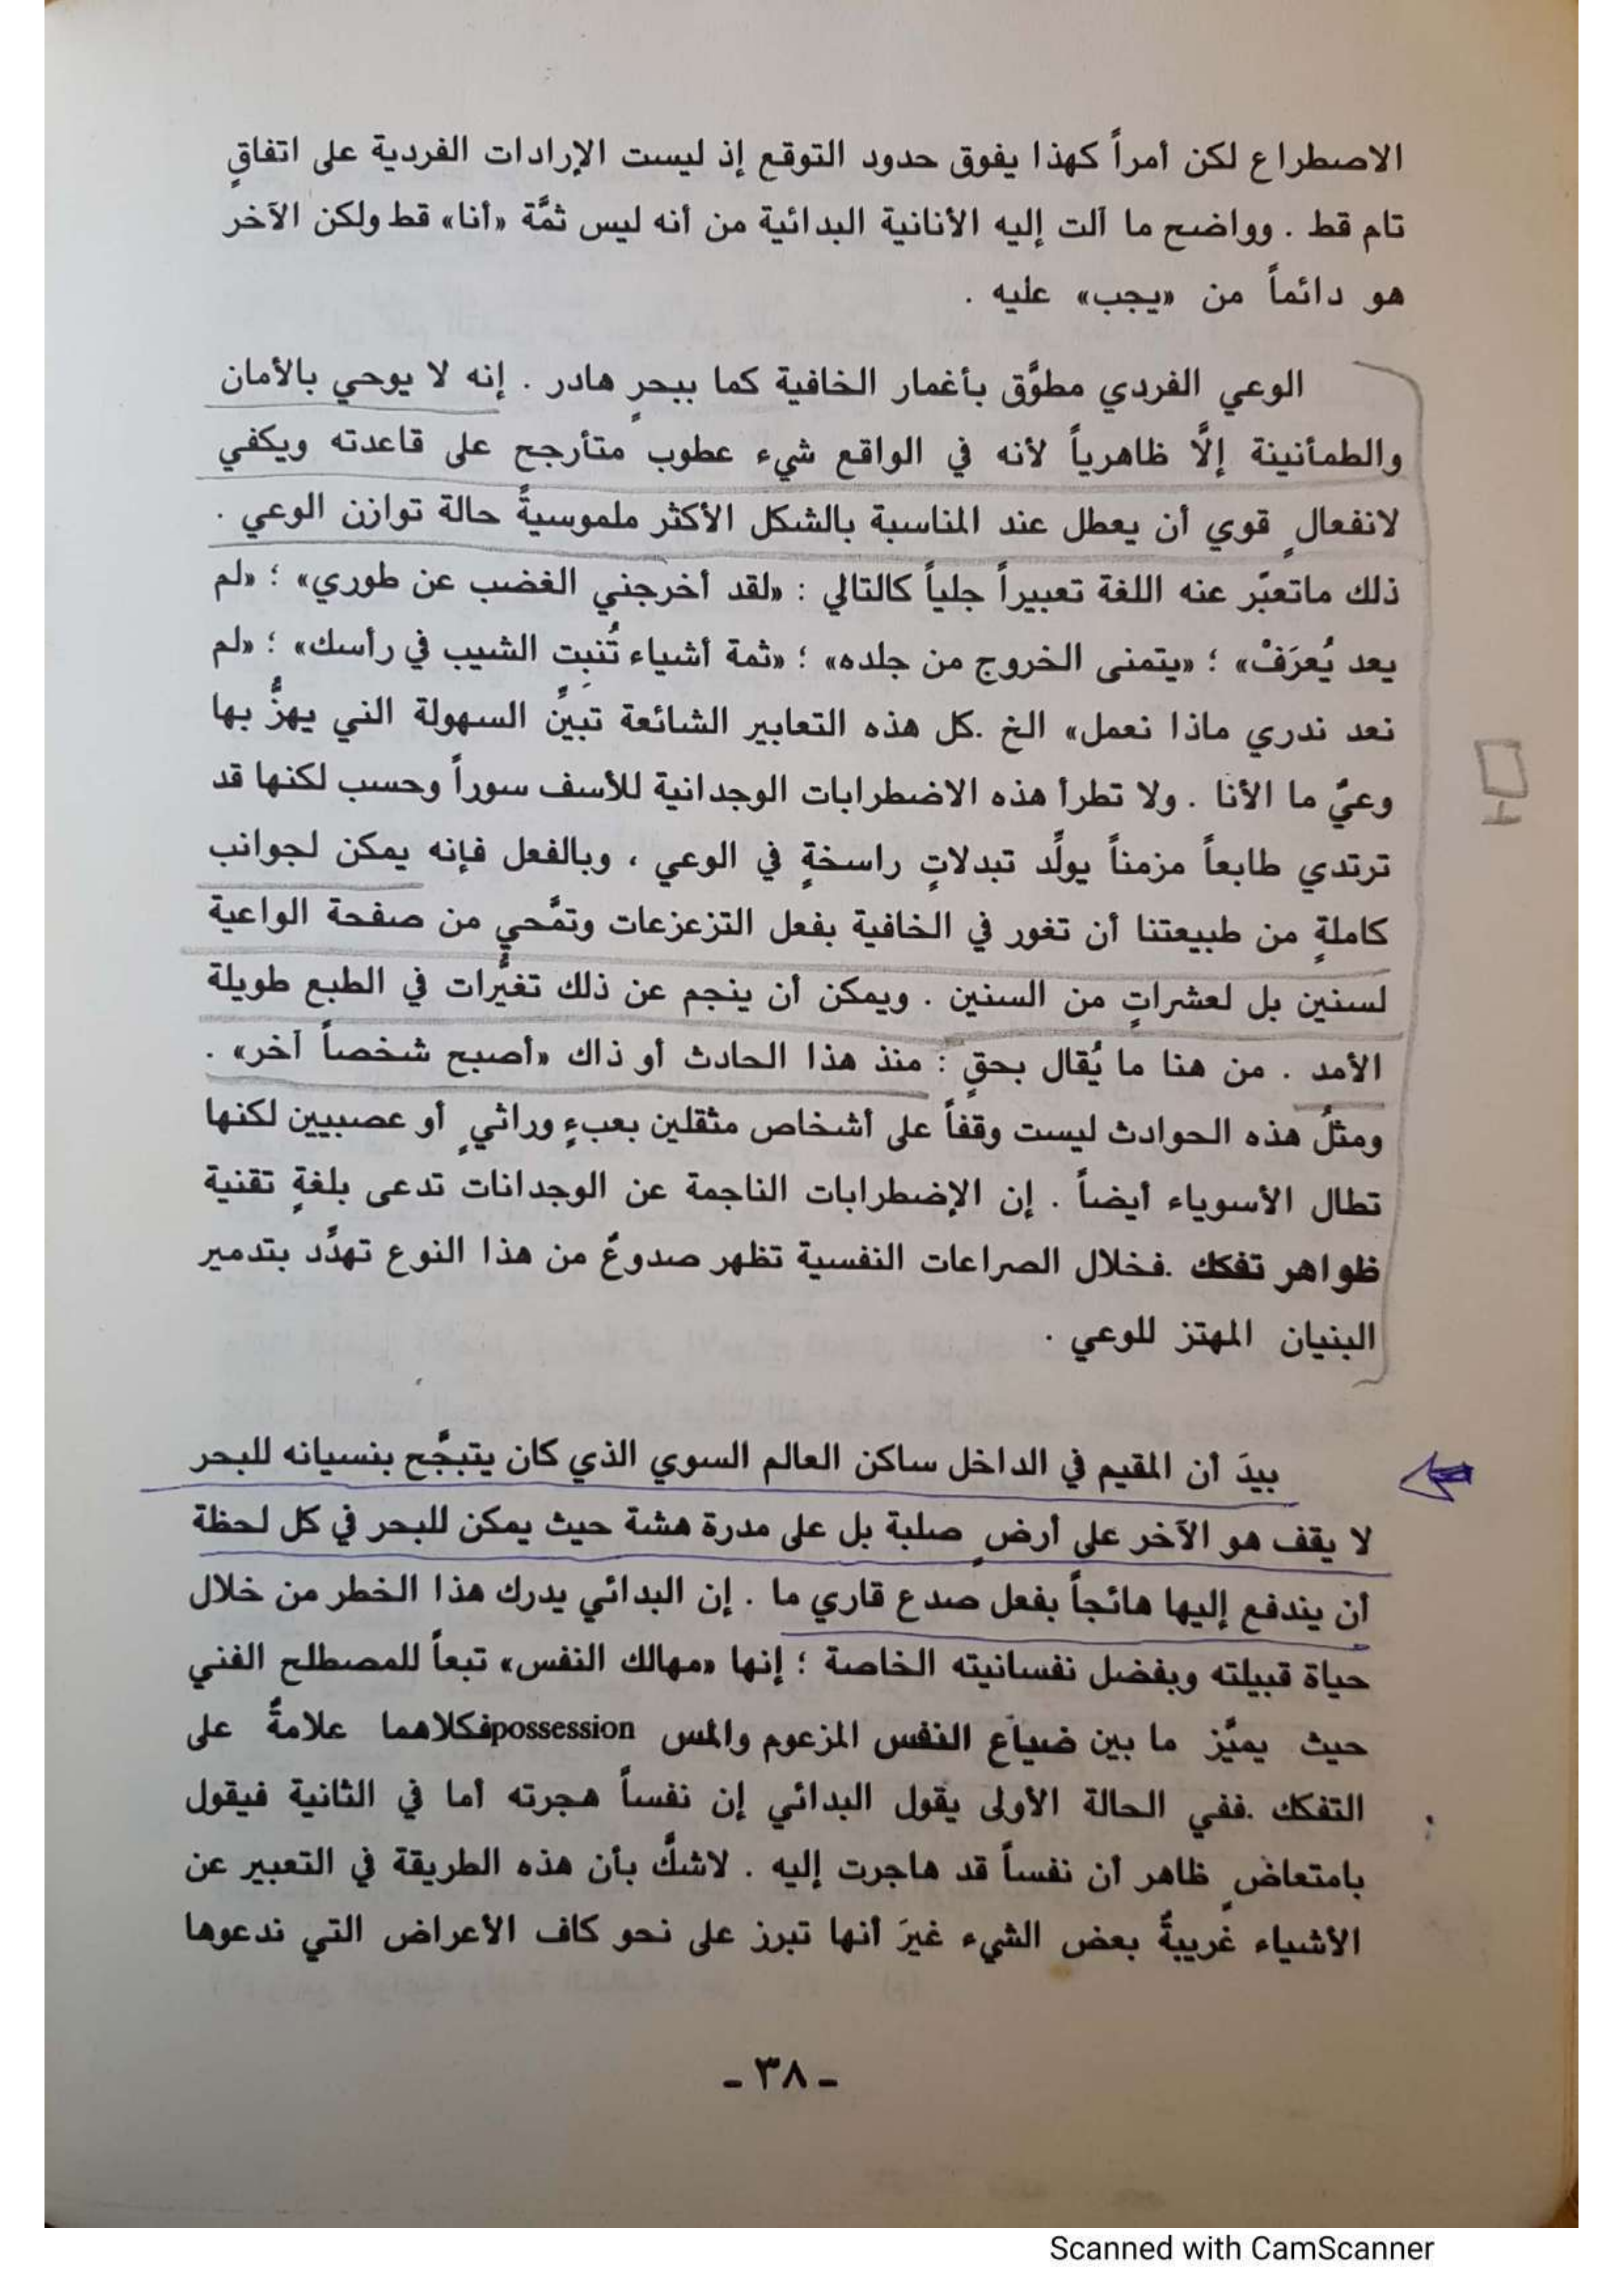 الاصطراع لكن أمراً كهذا يفوق حدود التوقع إذ ليست الإرادات الفردية على اتفاقٍ
تام قط . وواضح ما آلت إليه الأنانية البدائية من أنه ليس ثمَّة «أنا» قط ولكن الآخر
هو دائماً من «يجب» عليه .
الوعي الفردي مطوَّق بأغمار الخافية كما ببحرٍ هادر . إنه لا يوحي بالأمان
والطمأنينة إلَّا ظاهرياً لأنه في الواقع شيء عطوب متأرجح على قاعدته ويكفي
لانفعالٍ قوي أن يعطل عند المناسبة بالشكل الأكثر ملموسيةً حالة توازن الوعي .
ذلك ماتعبّر عنه اللغة تعبيراً جلياً كالتالي : «لقد أخرجني الغضب عن طوري» ؛ «لم
يعد يُعرَفْ» ؛ «يتمنى الخروج من جلده» ؛ «ثمة أشياء تُنبِت الشيب في رأسك» ؛ «لم
نعد ندري ماذا نعمل» الخ .كل هذه التعابير الشائعة تبيِّن السهولة التي يهزُّ بها
وعيٌ ما الأنا . ولا تطرأ هذه الاضطرابات الوجدانية للأسف سوراً وحسب لكنها قد
ترتدي طابعاً مزمناً يولِّد تبدلاتٍ راسخةٍ في الوعي ، وبالفعل فإنه يمكن لجوانب
كاملةٍ من طبيعتنا أن تغور في الخافية بفعل التزعزعات وتمَّحي من صفحة الواعية
لسنين بل لعشراتٍ من السنين . ويمكن أن ينجم عن ذلك تغيُّرات في الطبع طويلة
الأمد . من هنا ما يُقال بحقٍ : منذ هذا الحادث أو ذاك «أصبح شخصاً آخر» .
ومثلُ هذه الحوادث ليست وقفاً على أشخاص مثقلين بعبءٍ وراثيٍ أو عصبيين لكنها
تطال الأسوياء أيضاً . إن الإضطرابات الناجمة عن الوجدانات تدعى بلغةٍ تقنية
ظواهر تفكك .فخلال الصراعات النفسية تظهر صدوعٌ من هذا النوع تهدِّد بتدمير
البنيان المهتز للوعي .
بيدَ أن المقيم في الداخل ساكن العالم السوي الذي كان يتبجَّح بنسيانه للبحر
لا يقف هو الآخر على أرضٍ صلبة بل على مدرة هشة حيث يمكن للبحر في كل لحظة
أن يندفع إليها هائجاً بفعل صدع قاري ما . إن البدائي يدرك هذا الخطر من خلال
حياة قبيلته وبفضل نفسانيته الخاصة ؛ إنها «مهالك النفس» تبعاً للمصطلح الفني
حيث يميَّز ما بين ضياع النفس المزعوم والمس possessionفكلاهما علامةٌ على
التفكك .ففي الحالة الأولى يقول البدائي إن نفساً هجرته أما في الثانية فيقول
بامتعاضٍ ظاهر أن نفساً قد هاجرت إليه . لاشكَّ بأن هذه الطريقة في التعبير عن
الأشياء غريبةٌ بعض الشيء غيرَ أنها تبرز على نحو كاف الأعراض التي ندعوها
- ٣٨ -
Scanned with CamScanner